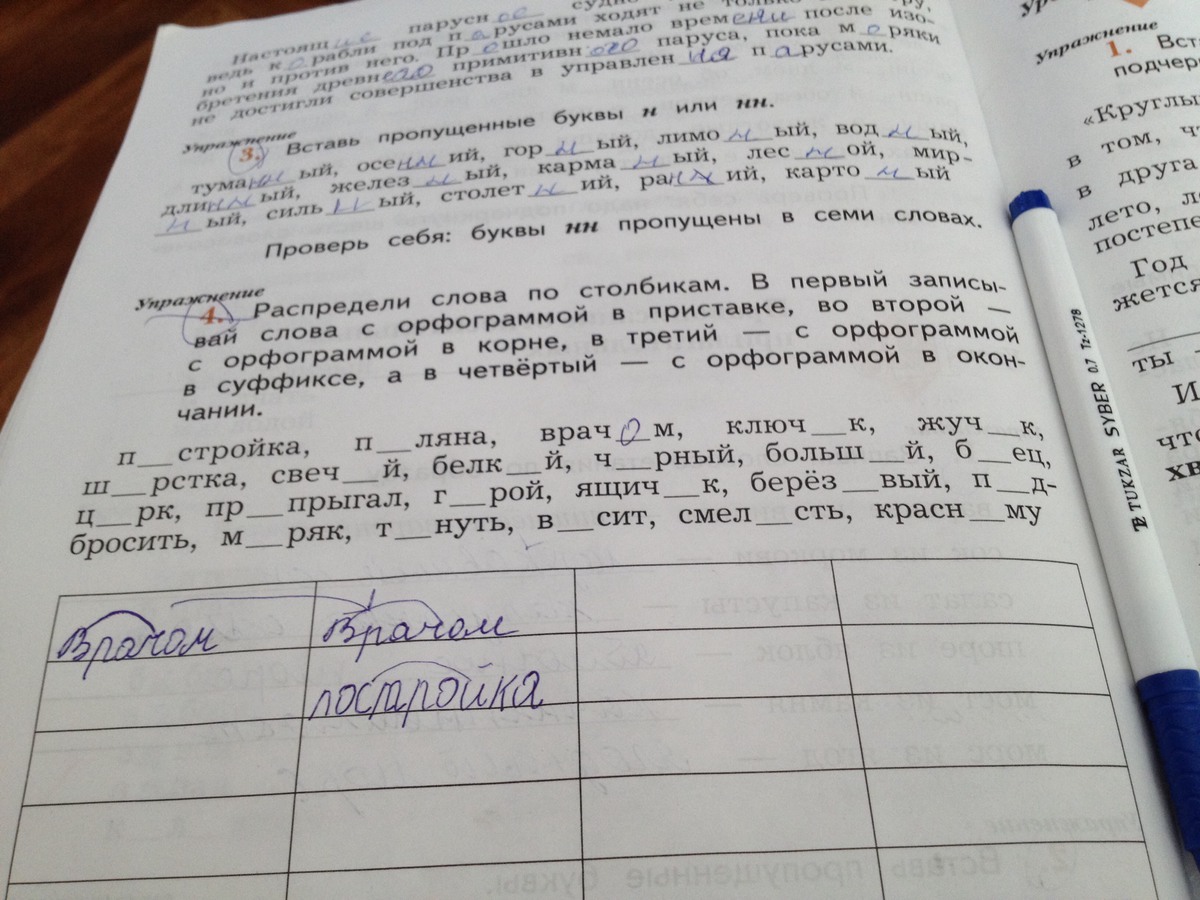 парусн ое судно
Настоящ ие
ведь к о рабли под п а русами ходят не только
но и против него. Пр о шло немало врем ени после изо-
бретения древн его примитивн ого паруса, пока м о ряки
не достигли совершенства в управлен ия п а русами.
Упражнение
3. Вставь пропущенные буквы н или нн.
тума нн ый, осе нн ий, гор н ый, лимо н ый, вод н ый,
дли нн ый, желез н ый, карма н ый, лес н ой, мир-
н ый, силь н ый, столет н ий, ра нн ий, карто н ый
Проверь себя: буквы нн пропущены в семи словах.
Упражнение
4. Распредели слова по столбикам. В первый записы-
вай слова с орфограммой в приставке, во второй —
с орфограммой в корне, в третий — с орфограммой
в суффиксе, а в четвёртый — с орфограммой в окон-
чании.
п__стройка, п__ляна, врач о м, ключ__к, жуч__к,
ш__рстка, свеч__й, белк__й, ч__рный, больш__й, б__ец,
ц__рк, пр__прыгал, г__рой, ящич__к, берёз__вый, п__д-
бросить, м__ряк, т__нуть, в__сит, смел__сть, красн__му
Врачом Врачом
постройка
TUKZAR SYBER 0.7 Tz-1278
Упражнение
1. Вст
подчер
«Круглы
в том, ч
в друга
лето, л
постепе
Год
жется
ты —
И
что
хв